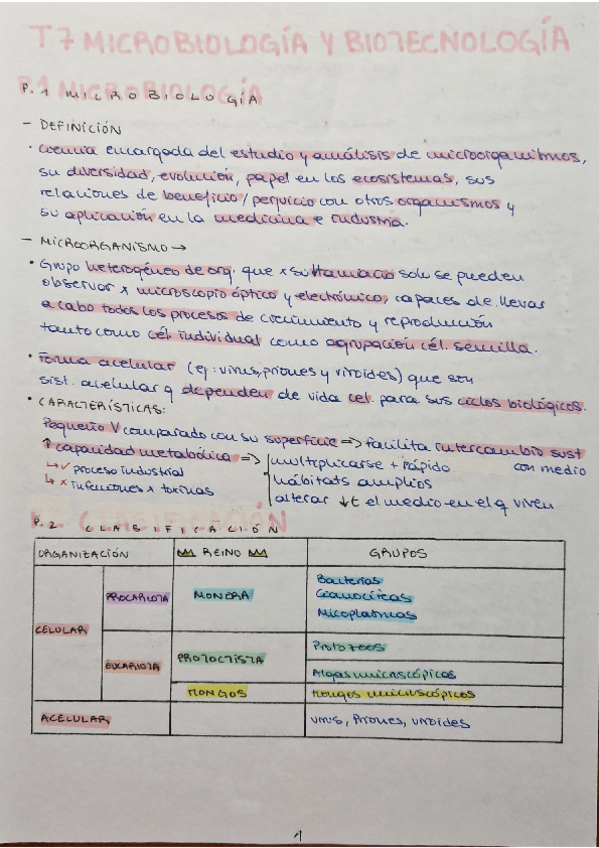 T7 MICROBIOLOGÍA Y BIOTECNOLOGÍA
P.1 MICROBIOLOGÍA
- DEFINICIÓN
· Ciencia encargada del estudio y análisis de microorganismos,
su diversidad, evolución, papel en los ecosistemas, sus
relaciones de beneficio/perjuicio con otros organismos y
su aplicación en la medicina e industria.
- MICROORGANISMO →
· Grupo heterogéneo de org. que x su tamaño solo se pueden
observar x microscopio óptico y electrónico, capaces de llevar
a cabo todos los procesos de crecimiento y reproducción
tanto como cél. individual como agrupación cél. sencilla.
· Forma acelular (ej: virus, priones y viroides) que son
sist. acelular q dependen de vida cel. para sus ciclos biológicos.
· CARACTERÍSTICAS:
Pequeño V comparado con su superficie => facilita intercambio sust
con medio
↑ capacidad metabólica => multiplicarse + rápido
hábitats amplios
alterar ↓t el medio en el q viven
↳ ✓ proceso industrial
↳ x infecciones x toxinas
P.2 CLASIFICACIÓN
ORGANIZACIÓN REINO GRUPOS
CELULAR
PROCARIOTA MONERA
Bacterias
Cianofíceas
Micoplasmas
EUCARIOTA PROTOCTISTA
Protozoos
Algas microscópicas
HONGOS Hongos microscópicos
ACELULAR virus, Priones, viroides
1